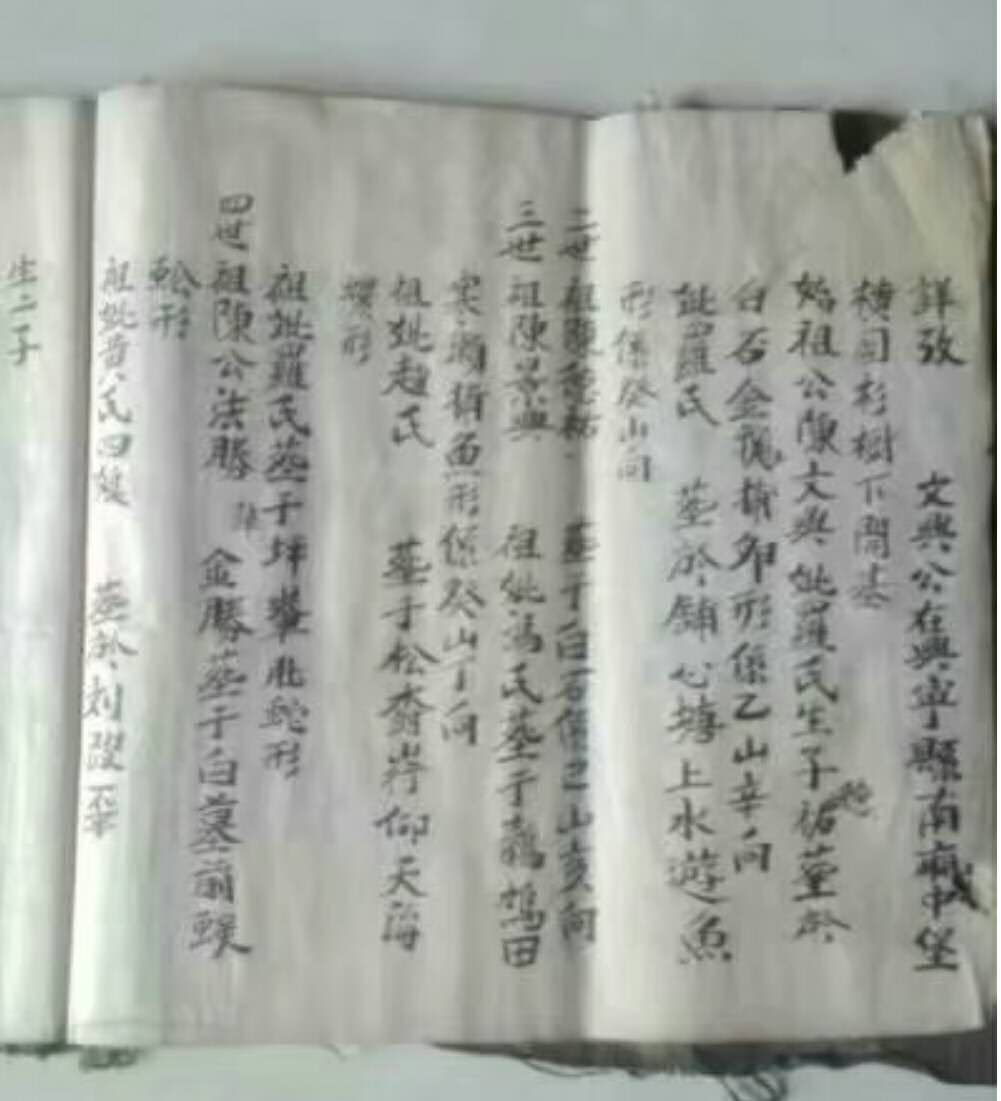 詳攷 文興公在興寧縣南廂中堡
橫司杉樹下開基
始祖公陳文興 妣羅氏生子祐葬於
白石金 卯形係乙山辛向
妣羅氏 葬於鋪心塘上水遊魚
形係癸山向
二世祖陳 祐 葬于白石係巳山亥向
三世祖陳景興 祖妣馮氏葬于 鴣田
形係癸山丁向
祖妣趙氏 葬于松 仰天海
螺形
祖妣羅氏葬于坪 蛇形
四世祖陳公法勝 金勝葬于白墓前蜈
蚣形
祖妣黃氏四 葬於刘
生二子